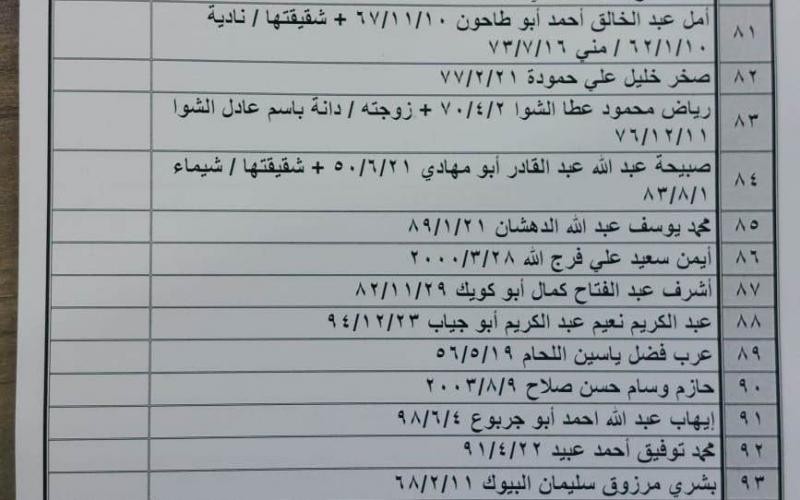 ٨١ أمل عبد الخالق أحمد أبو طاحون ٦٧/١١/١٠ + شقيقتها / نادية
٦٢/١/١٠ / مني ٧٣/٧/١٦
٨٢ صخر خليل علي حمودة ٧٧/٢/٢١
٨٣ رياض محمود عطا الشوا ٧٠/٤/٢ + زوجته / دانة باسم عادل الشوا
٧٦/١٢/١١
٨٤ صبيحة عبد الله عبد القادر أبو مهادي ٥٠/٦/٢١ + شقيقتها / شيماء
٨٣/٨/١
٨٥ محمد يوسف عبد الله الدهشان ٨٩/١/٢١
٨٦ أيمن سعيد علي فرج الله ٢٠٠٠/٣/٢٨
٨٧ أشرف عبد الفتاح كمال أبو كويك ٨٢/١١/٢٩
٨٨ عبد الكريم نعيم عبد الكريم أبو جياب ٩٤/١٢/٢٣
٨٩ عرب فضل ياسين اللحام ٥٦/٥/١٩
٩٠ حازم وسام حسن صلاح ٢٠٠٣/٨/٩
٩١ إيهاب عبد الله احمد أبو جربوع ٩٨/٦/٤
٩٢ محمد توفيق أحمد عبيد ٩١/٤/٢٢
٩٣ بشري مرزوق سليمان البيوك ٦٨/٢/١١